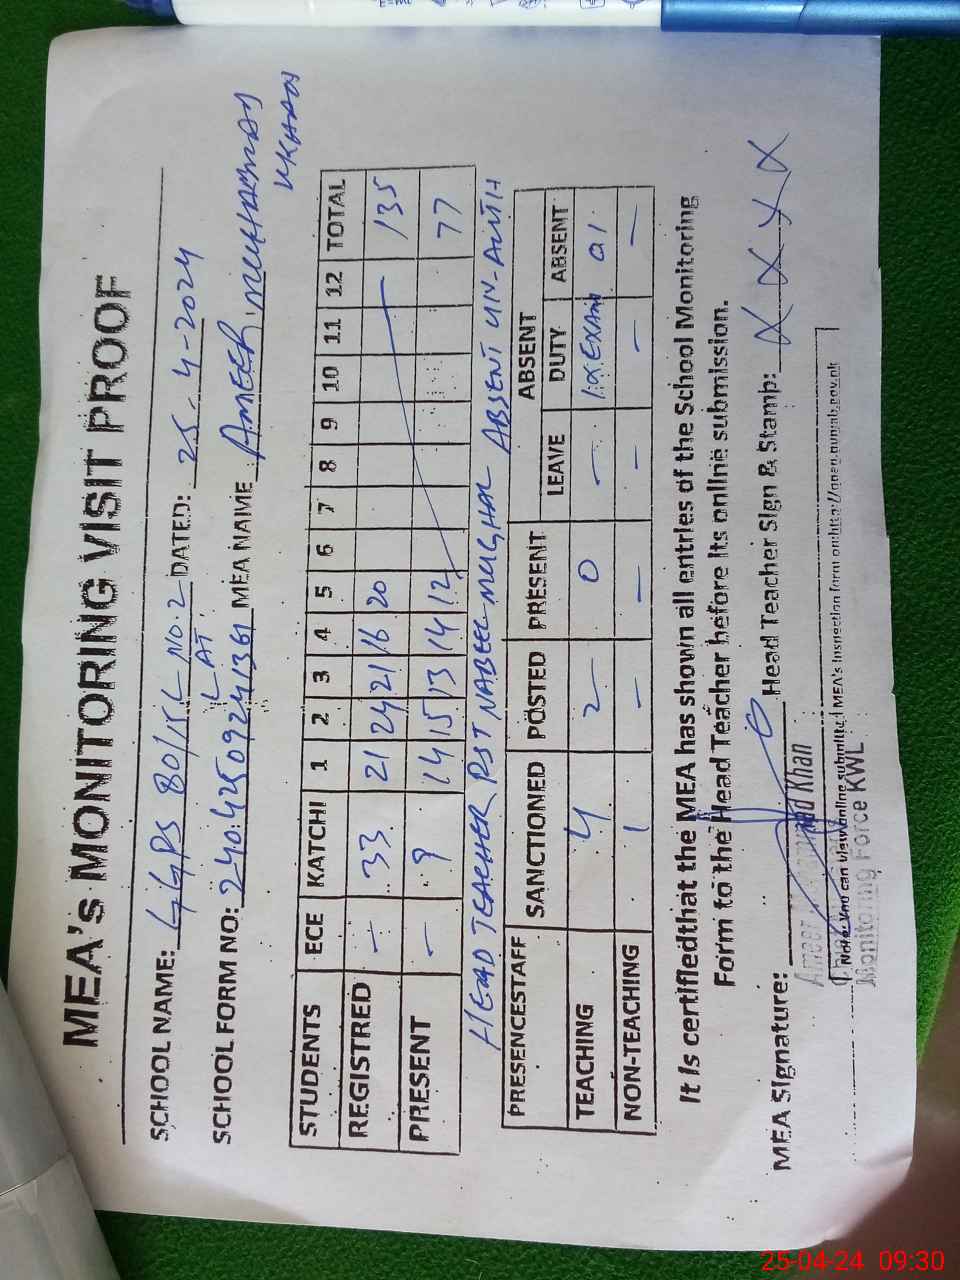 MEA's MONITORING VISIT PROOF
SCHOOL NAME: GGPS 80/15L NO.2 DATED: 25-4-2024
LAT
SCHOOL FORM NO: 240425092741361 MEA NAME AMEER MUHAMMAD
KHAN
STUDENTS ECE KATCHI 1 2 3 4 5 6 7 8 9 10 11 12 TOTAL
REGISTRED - 33 21 24 21 16 20 135
PRESENT - 9 14 15 13 14 12 77
HEAD TEACHER PST NABEEL MUGHAL ABSENT UN-AUTH
PRESENCESTAFF SANCTIONED POSTED PRESENT ABSENT
LEAVE DUTY ABSENT
TEACHING 4 2 0 - 1xEXAM 01
NON-TEACHING 1 - - - - -
It is certifiedthat the MEA has shown all entries of the School Monitoring
Form to the Head Teacher before its online submission.
MEA Signature: Head Teacher Sign & Stamp: X X X X
Ameer Muhammad Khan
Note: You can view online submitted MEA's Inspection form on http://open.punjab.gov.pk
Monitoring Force KWL
25-04-24 09:30